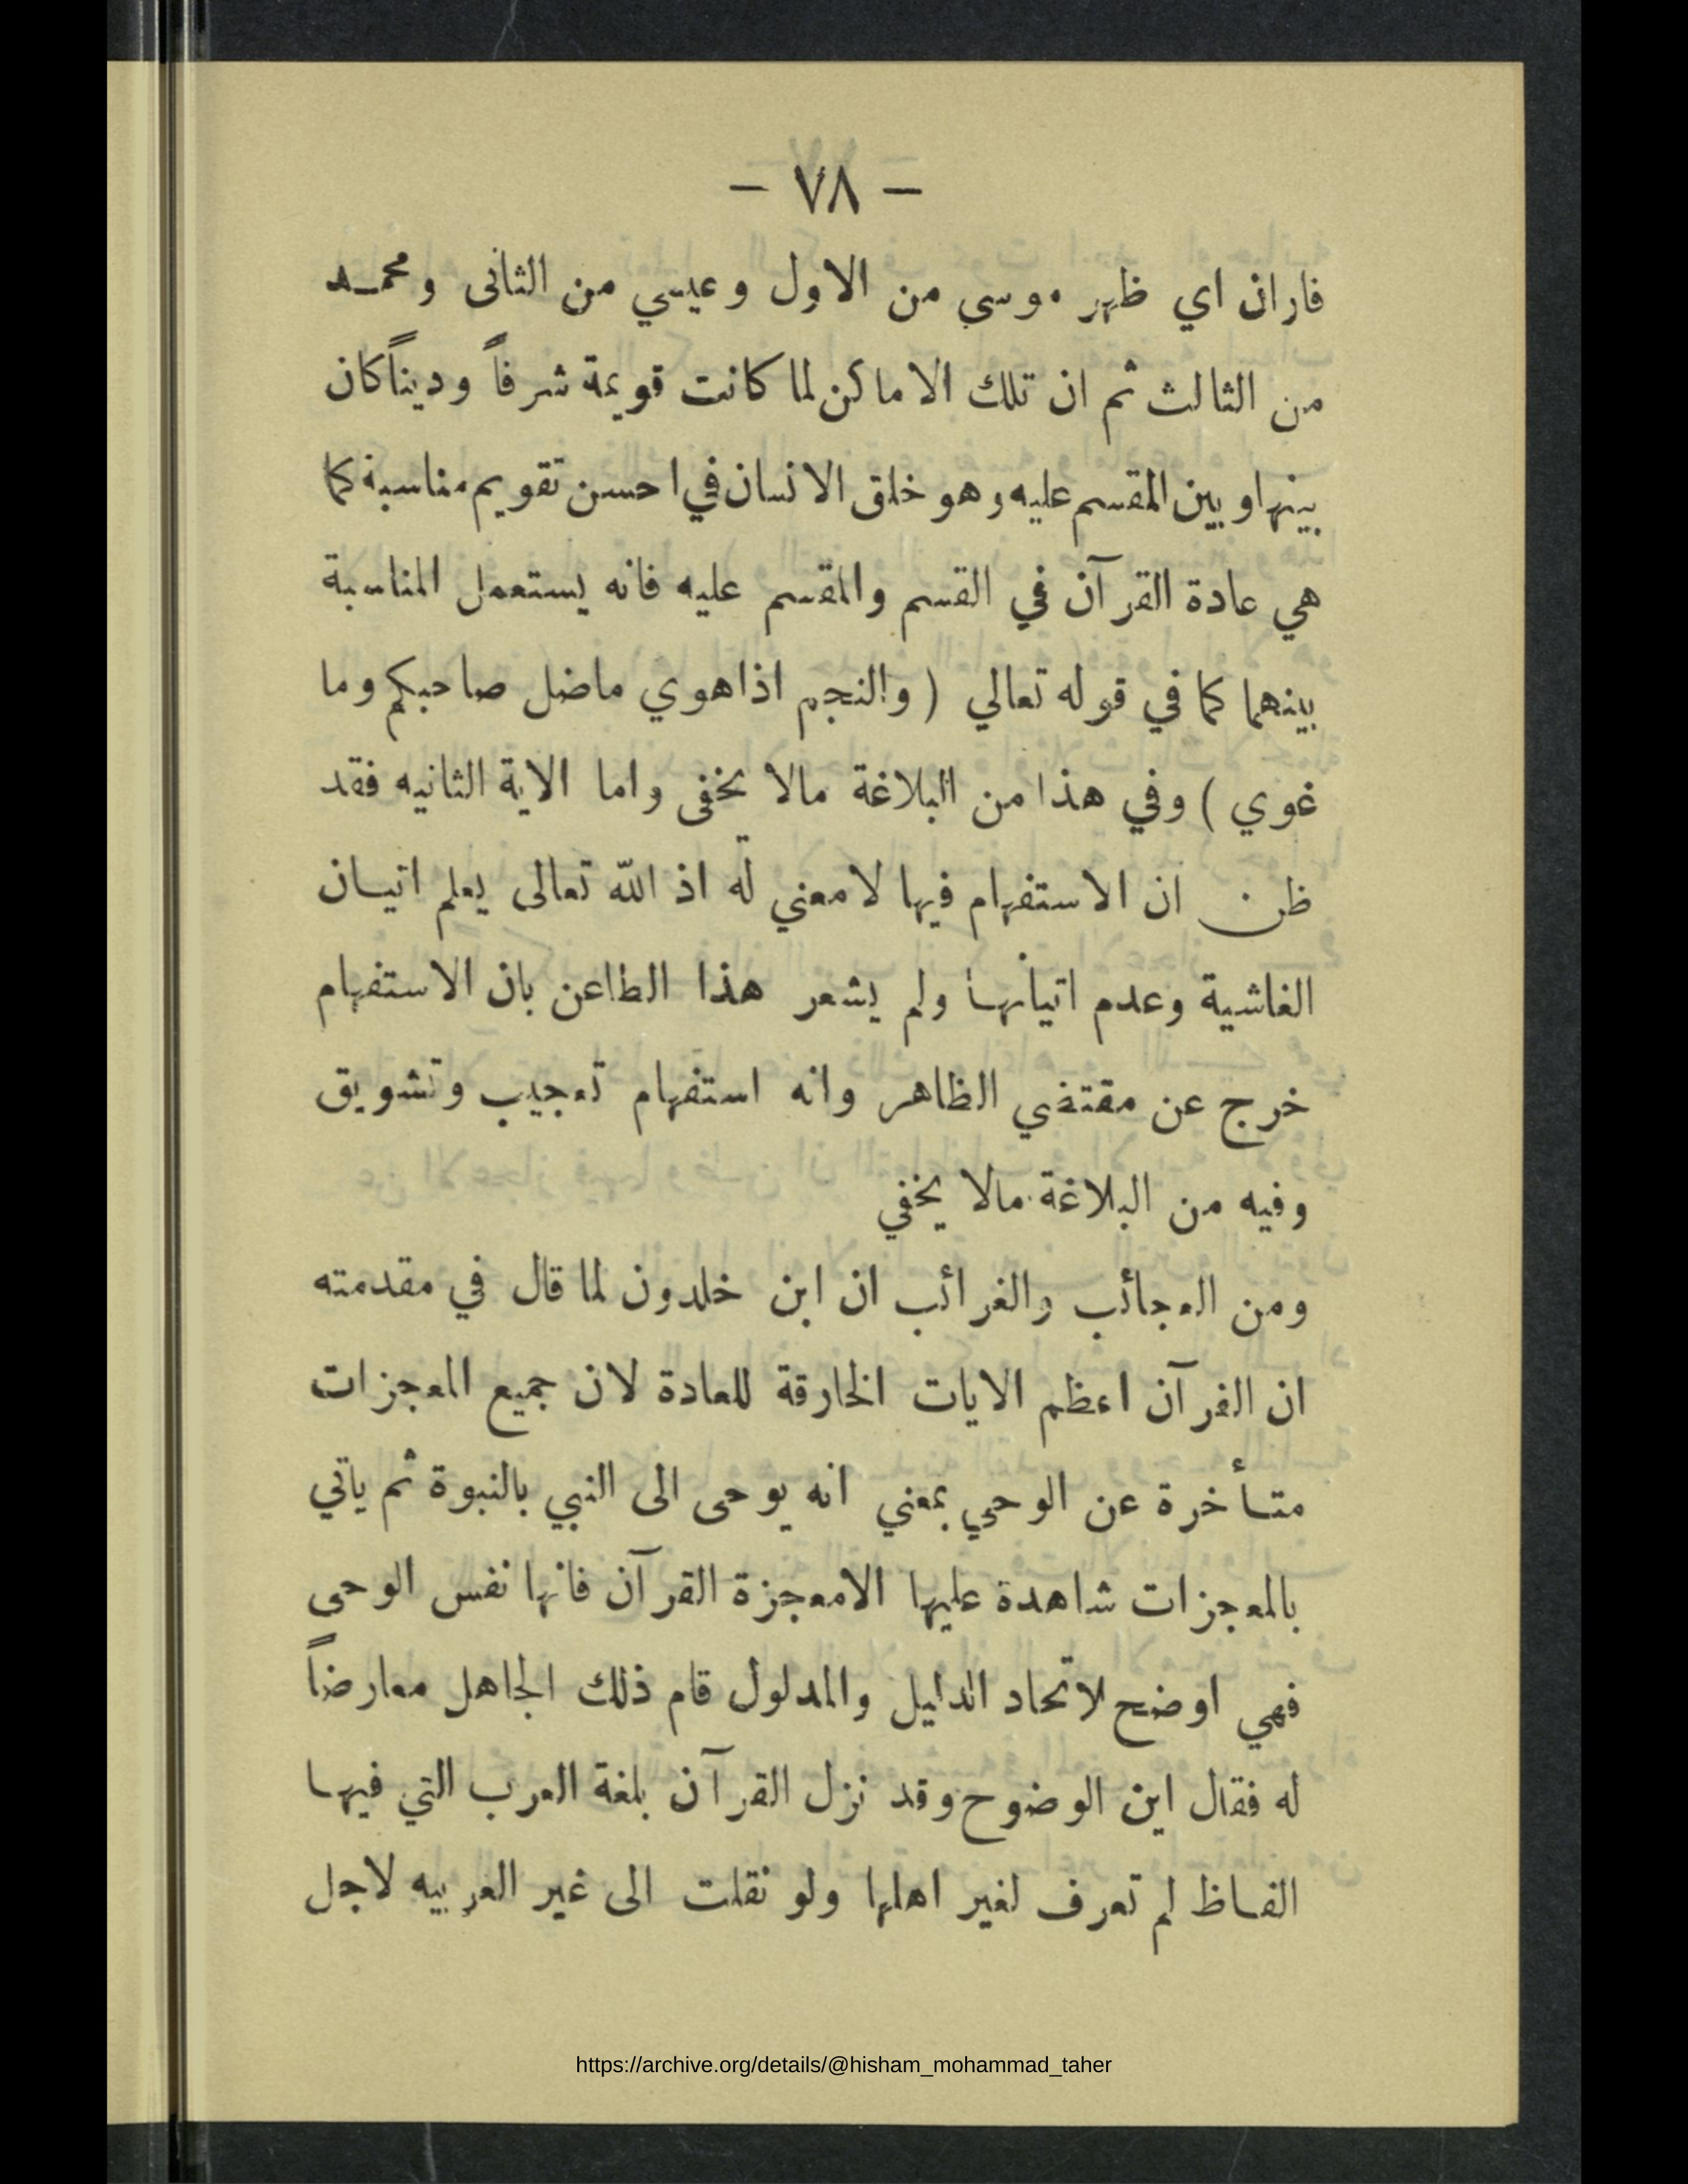 — ٧٨ —
فاران اي ظهر موسى من الاول وعيسي من الثانى ومحمـد
من الثالث ثم ان تلك الاماكن لما كانت قويمة شرفاً وديناً كان
بينها وبين المقسم عليه وهو خلق الانسان في احسن تقويم مناسبة كما
هي عادة القرآن في القسم والمقسم عليه فانه يستعمل المناسبة
بينهما كما في قوله تعالي ( والنجم اذا هوي ماضل صاحبكم وما
غوي ) وفي هذا من البلاغة مالا يخفى واما الاية الثانيه فقد
ظن ان الاستفهام فيها لا معني له اذ الله تعالى يعلم اتيـان
الغاشية وعدم اتيانهـا ولم يشعر هذا الطاعن بان الاستفهام
خرج عن مقتضي الظاهر وانه استفهام تعجيب وتشويق
وفيه من البلاغة مالا يخفي
ومن العجائب والغرائب ان ابن خلدون لما قال في مقدمته
ان القرآن اعظم الايات الخارقة للعادة لان جميع المعجزات
متـأخرة عن الوحي بمعني انه يوحى الى النبي بالنبوة ثم ياتي
بالمعجزات شاهدة عليها الامعجزة القرآن فانها نفس الوحى
فهي اوضح لاتحاد الدليل والمدلول قام ذلك الجاهل معارضاً
له فقال اين الوضوح وقد نزل القرآن بلغة العرب التي فيهـا
الفـاظ لم تعرف لغير اهلها ولو نقلت الى غير العربيه لاجل
https://archive.org/details/@hisham_mohammad_taher